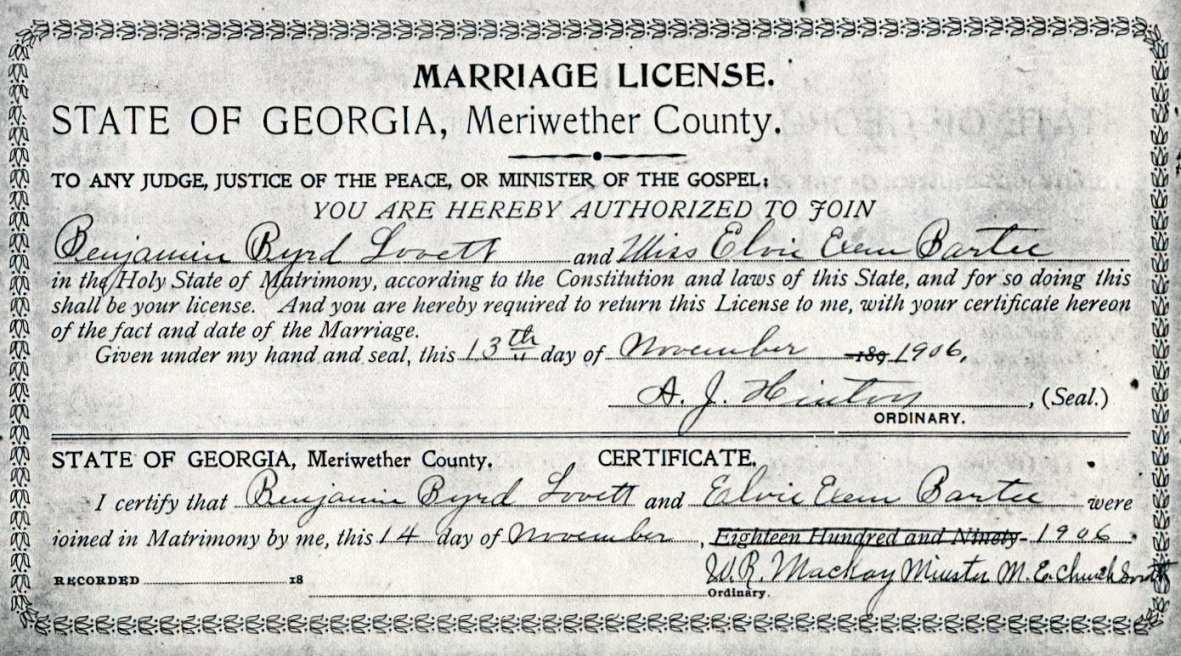 MARRIAGE LICENSE.
STATE OF GEORGIA, Meriwether County.
TO ANY JUDGE, JUSTICE OF THE PEACE, OR MINISTER OF THE GOSPEL:
YOU ARE HEREBY AUTHORIZED TO JOIN
Benjamin Byrd Lovett and Miss Elvie Exem Bartee
in the Holy State of Matrimony, according to the Constitution and laws of this State, and for so doing this
shall be your license. And you are hereby required to return this License to me, with your certificate hereon
of the fact and date of the Marriage.
Given under my hand and seal, this 13th day of November 189 1906.
A. J. Hinton, (Seal.)
ORDINARY.
STATE OF GEORGIA, Meriwether County. CERTIFICATE.
I certify that Benjamin Byrd Lovett and Elvie Exem Bartee were
joined in Matrimony by me, this 14 day of November, Eighteen Hundred and Ninety- 1906
W. R. Mackay Minster M. E. Church South
RECORDED 18
Ordinary.